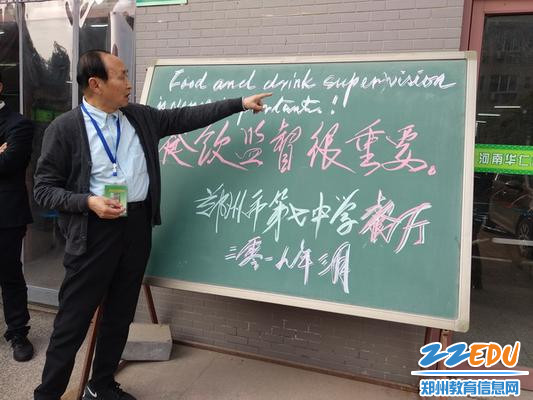 Food and drink supervision
is very important!
餐饮监督很重要。
郑州市第七中学餐厅
二零一九年三月
河南华仁
ZZEDU
郑州教育信息网